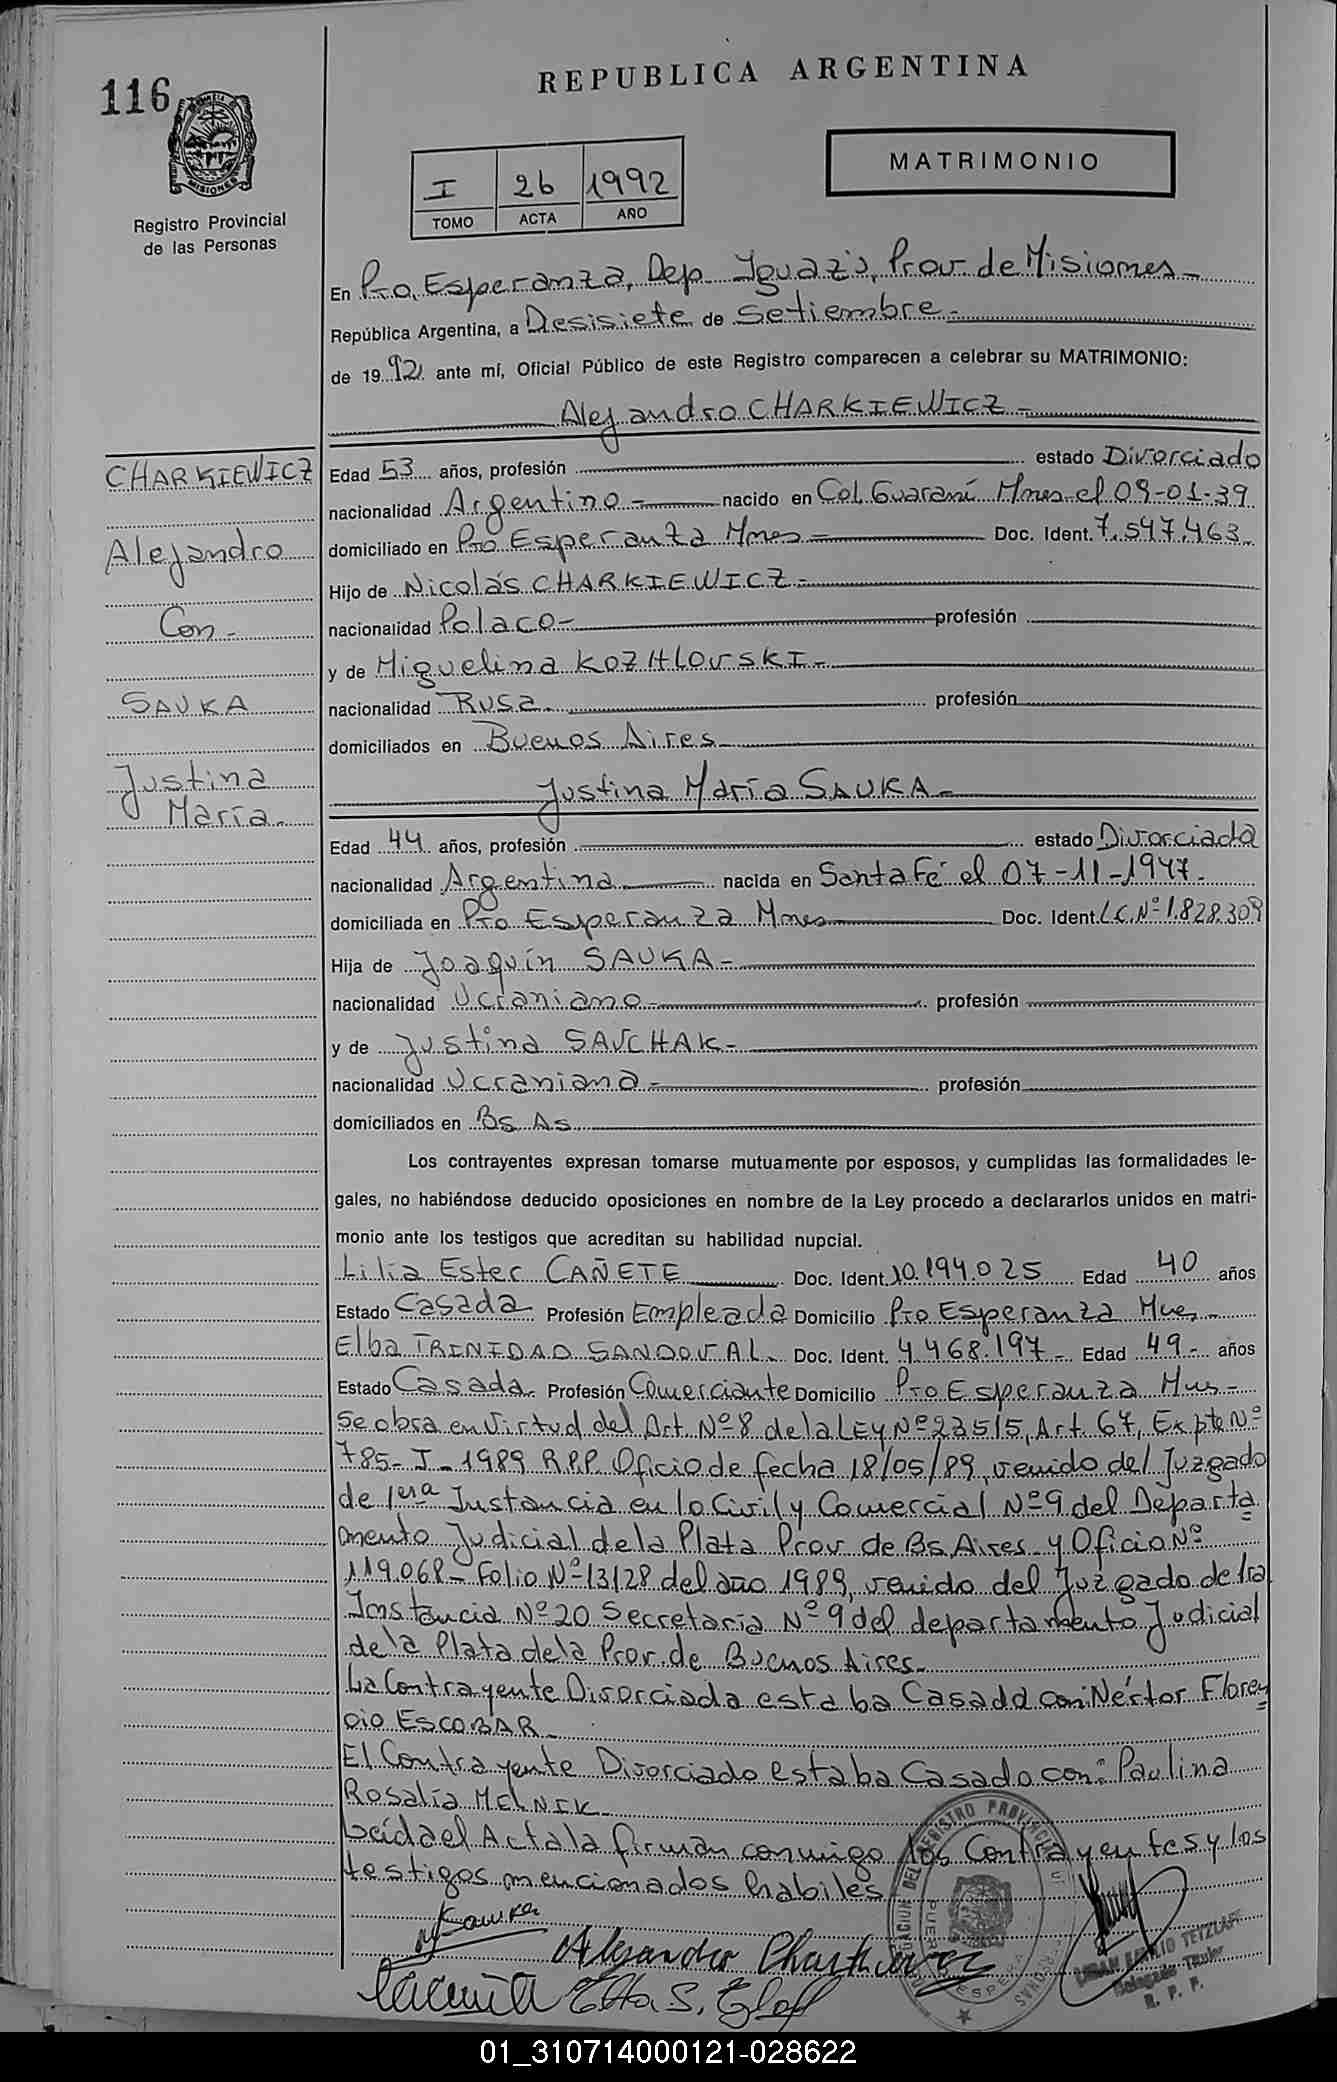 REPUBLICA ARGENTINA
116
MISIONES
Registro Provincial
de las Personas
I 26 1992
TOMO ACTA AÑO
MATRIMONIO
En Pto. Esperanza, Dep. Iguazú, Prov. de Misiones -
República Argentina, a Desisiete de Setiembre -
de 1992 ante mí, Oficial Público de este Registro comparecen a celebrar su MATRIMONIO:
Alejandro CHARKIEWICZ -
CHARKIEWICZ
Alejandro
Con -
SAUKA
Justina
María -
Edad 53 años, profesión estado Divorciado
nacionalidad Argentino - nacido en Col. Guaraní Mnes el 09-01-39
domiciliado en Pto Esperanza Mnes - Doc. Ident. 7.547.463 -
Hijo de Nicolás CHARKIEWICZ -
nacionalidad Polaco - profesión
y de Miguelina KOZHLOVSKI -
nacionalidad Rusa - profesión
domiciliados en Buenos Aires -
Justina María SAUKA -
Edad 44 años, profesión estado Divorciada
nacionalidad Argentina nacida en Santa Fé el 07-11-1947 -
domiciliada en Pto Esperanza Mnes Doc. Ident. L.C. Nº 1.828.309
Hija de Joaquín SAUKA -
nacionalidad Ucraniano - profesión
y de Justina SAVCHAK -
nacionalidad Ucraniana - profesión
domiciliados en Bs As
Los contrayentes expresan tomarse mutuamente por esposos, y cumplidas las formalidades le-
gales, no habiéndose deducido oposiciones en nombre de la Ley procedo a declararlos unidos en matri-
monio ante los testigos que acreditan su habilidad nupcial.
Lilia Ester CAÑETE Doc. Ident. 10.194.025 Edad 40 años
Estado Casada Profesión Empleada Domicilio Pto Esperanza Mnes -
Elba TRINIDAD SANDOVAL - Doc. Ident. 4.468.197 - Edad 49 - años
Estado Casada - Profesión Comerciante Domicilio Pto Esperanza Mnes -
Se obra en Virtud del Art. Nº 8 de la LEY Nº 23515, Art. 67, Expte Nº
785 - I - 1989 R.P.P. Oficio de fecha 18/05/89, venido del Juzgado
de 1era Instancia en lo Civil y Comercial Nº 9 del Departa
mento Judicial de la Plata Prov. de Bs. Aires - y Oficio Nº
119.068 - Folio Nº 13128 del año 1989, venido del Juzgado de 1ra
Instancia Nº 20 Secretaria Nº 9 del departamento Judicial
de la Plata de la Prov. de Buenos Aires -
La Contrayente Divorciada estaba Casada con: Néstor Floren
cio ESCOBAR -
El Contrayente Divorciado estaba Casado con: Paulina
Rosalía MELNIK -
Leída el Acta la firman conmigo los Contrayentes y los
testigos mencionados habiles
Alejandro
Elba S.
Delegado Titular
R. P. P.
01_310714000121-028622